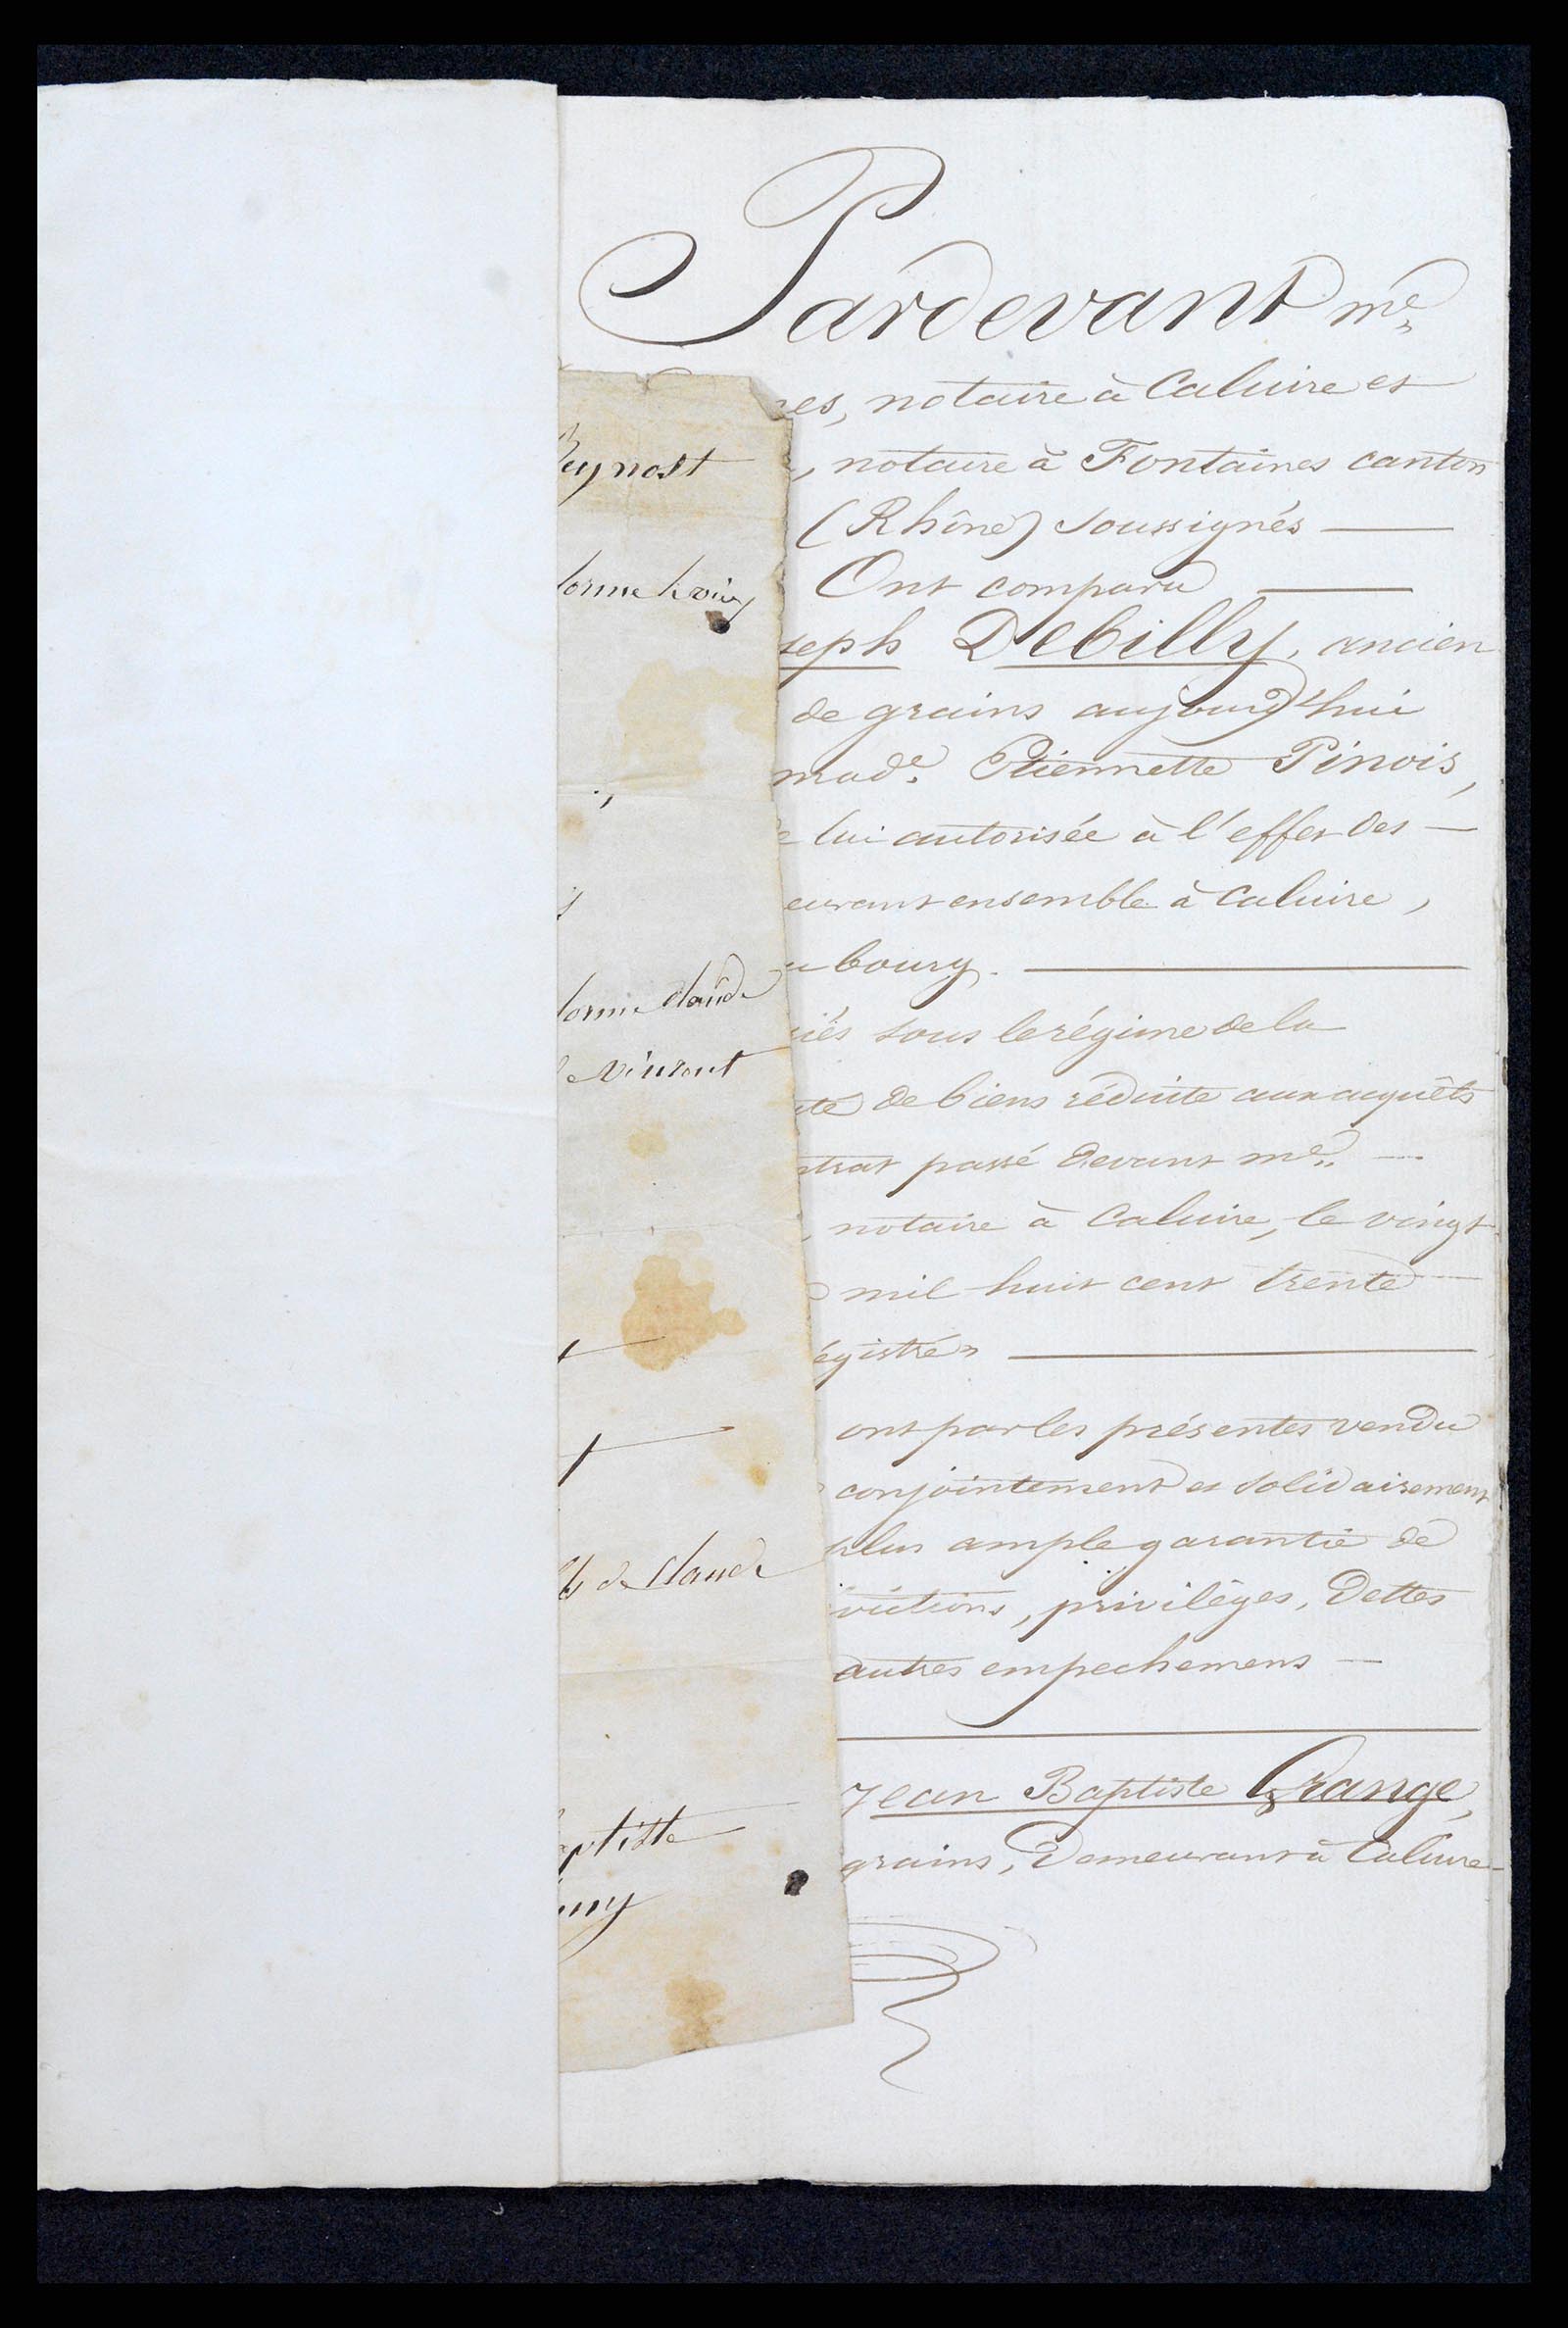 Pardevant me
es, notaire à Caluire et
, notaire à Fontaines canton
(Rhône) soussignés
Ont comparu
seph Debilly, ancien
de grains aujourd'hui
made Etiennette Pinois,
lui autorisée à l'effet des
eurant ensemble à Caluire,
bourg.
iés sous le régime de la
té de biens réduite aux acquêts
ntrat passé devant me
, notaire à Caluire, le vingt
mil huit cent trente
égistré
ont par les présentes vendu
conjointement et solidairement
plus ample garantie de
victions, privilèges, Dettes
autres empechemens
Jean Baptiste Grange,
grains, Demeurant à Caluire
eynost
lorme
lorme Claude
Vincent
de Claude
aptiste
ny